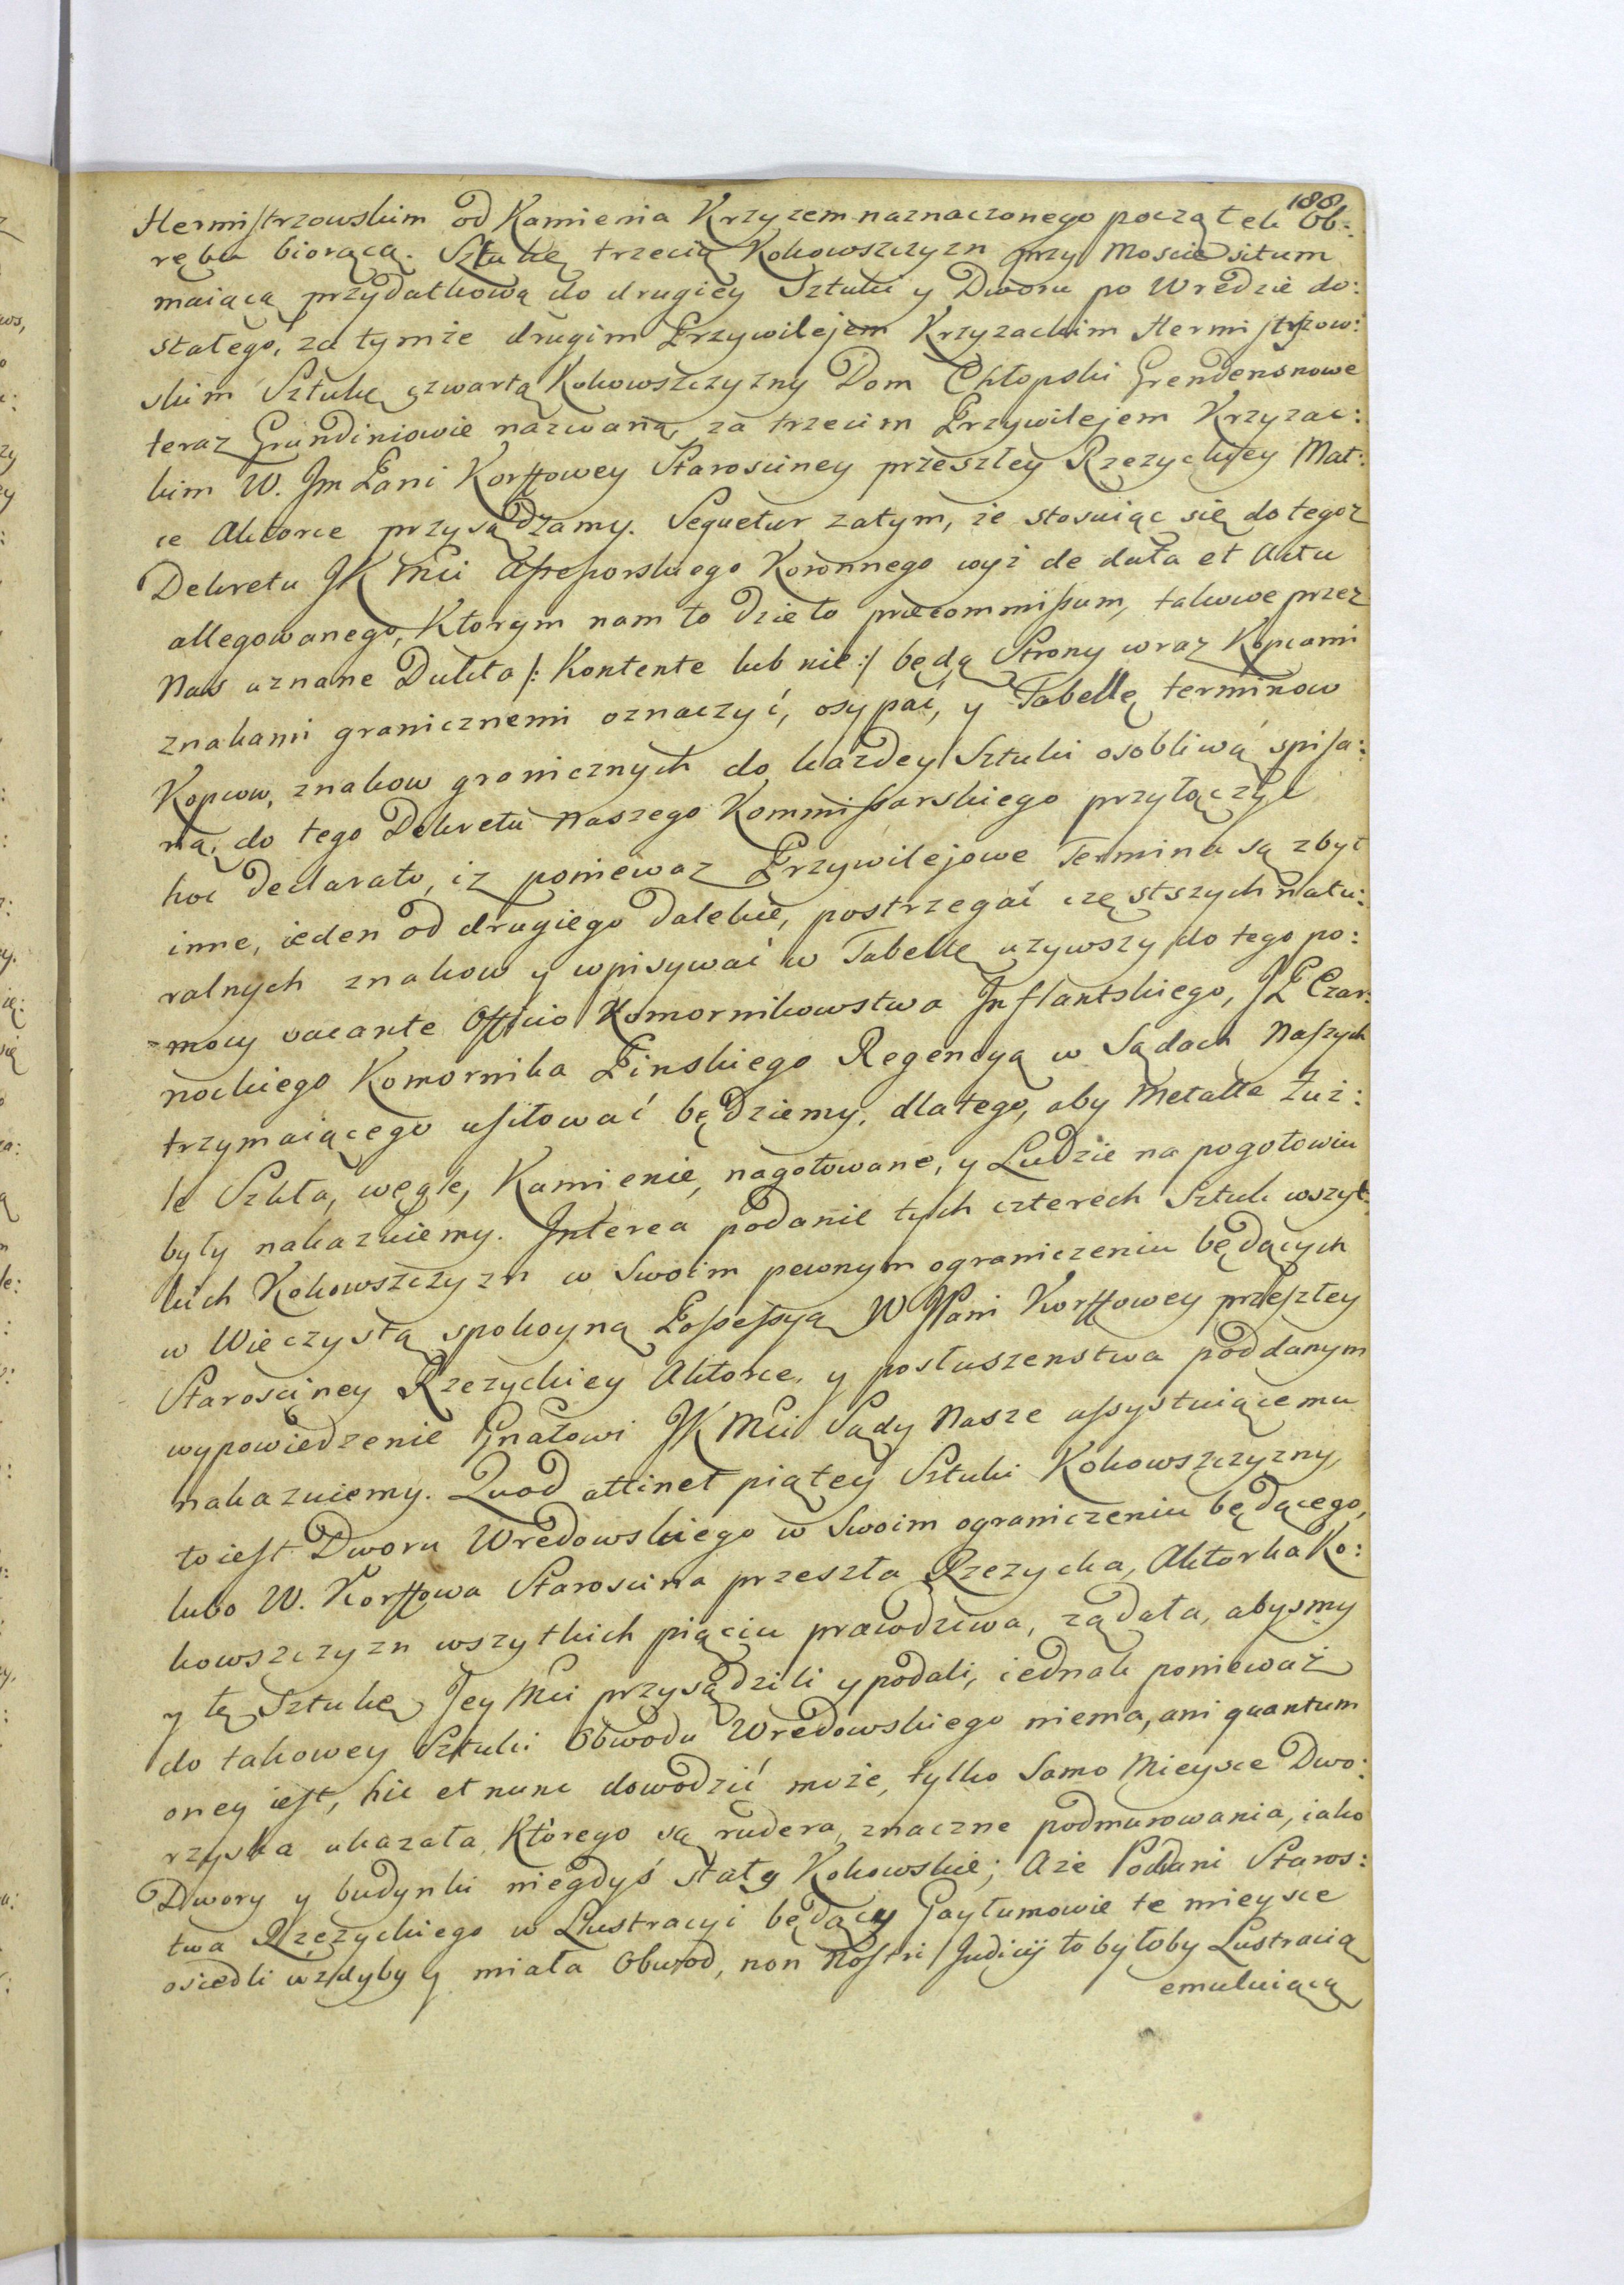 188
Hermistrzowskim od Kamienia Krzyzem naznaczonego początek Ob:
rębu biorącą. Sztukę trzecią Kokowszczyzn przy Moscie situm
maiącą przydatkową do drugiey Sztuki y Dworu po Wredzie do:
stałego, za tymże drugim Przywilejem Krzyzackim Hermistrzow:
skim Sztukę czwartą Kokowszczyzny Dom Chłopski Grendensnowe
teraz Grundiniowie nazwaną, za trzecim Przywilejem Krzyzac:
kim W. Jm Pani Korffowey Starosciney przeszłey Rzezyckiey Mat:
ce Aktorce przysądzamy. Sequetur zatym, że stosuiąc się do tegoz
Dekretu JK Mci Assessorskiego Koronnego wyż de data et Actu
allegowanego, Ktorym nam to dzieło præcommissum, takowe przez
Nas uznane Dukta /: Kontente lub nie :/ będą Strony wraz Kopcami
znakami granicznemi oznaczyć, osypać, y Tabellę terminow
Kopcow, znakow granicznych do każdey Sztuki osobliwą spisa:
ną, do tego Dekretu Naszego Kommissarskiego przyłączyć
hoc declarato, iz poniewaz Przywilejowe Termina są zbyt
inne, ieden od drugiego dalekie, postrzegać częstszych natu:
ralnych znakow y wpisywać w Tabellę uzywszy do tego po:
mocy vacante Officio Komornikowstwa Inflantskiego, JP Czar:
nockiego Komornika Pinskiego Regencyą w Sądach Naszych
trzymaiącego usiłować będziemy, dlatego, aby Metalla Żuż:
le Szkła, węgle, Kamienie, nagotowane, y Ludzie na pogotowiu
były nakazuiemy. Interea podanie tych czterech Sztuk wszyt:
kich Kokowszczyzn w Swoim pewnym ograniczeniu będących
w Wieczystą spokoyną Possessyą W JPani Korffowey przeszłey
Starosciney Rzezyckiey Aktorce, y posłuszenstwa poddanym
wypowiedzenie Gnałowi JK Mci Sądy Nasze assystuiącemu
nakazuiemy. Quod attinet piątey Sztuki Kokowszczyzny,
to iest Dworu Wredowskiego w Swoim ograniczeniu będącego,
lubo W. Korffowa Staroscina przeszła Rzezycka, Aktorka Ko:
kowszczyzn wszytkich pięciu prawdziwa, ządała, abysmy
y tę Sztukę Jey Mci przysądzili y podali, iednak ponieważ
do takowey Sztuki Obwodu Wredowskiego niema, ani quantum
oney iest, hic et nunc dowodzić może, tylko Samo Mieysce Dwo:
rzyska ukazała, Którego są rudera, znaczne podmurowania, iako
Dwory y budynki niegdyś stały Kokowskie; Aże Poddani Staros:
twa Rzezyckiego w Lustracyi będący Gayłumowie te mieysce
osiedli wzdyby y miała Obwod, non Nostri Judicij to byłoby Lustracią
emuluiącą